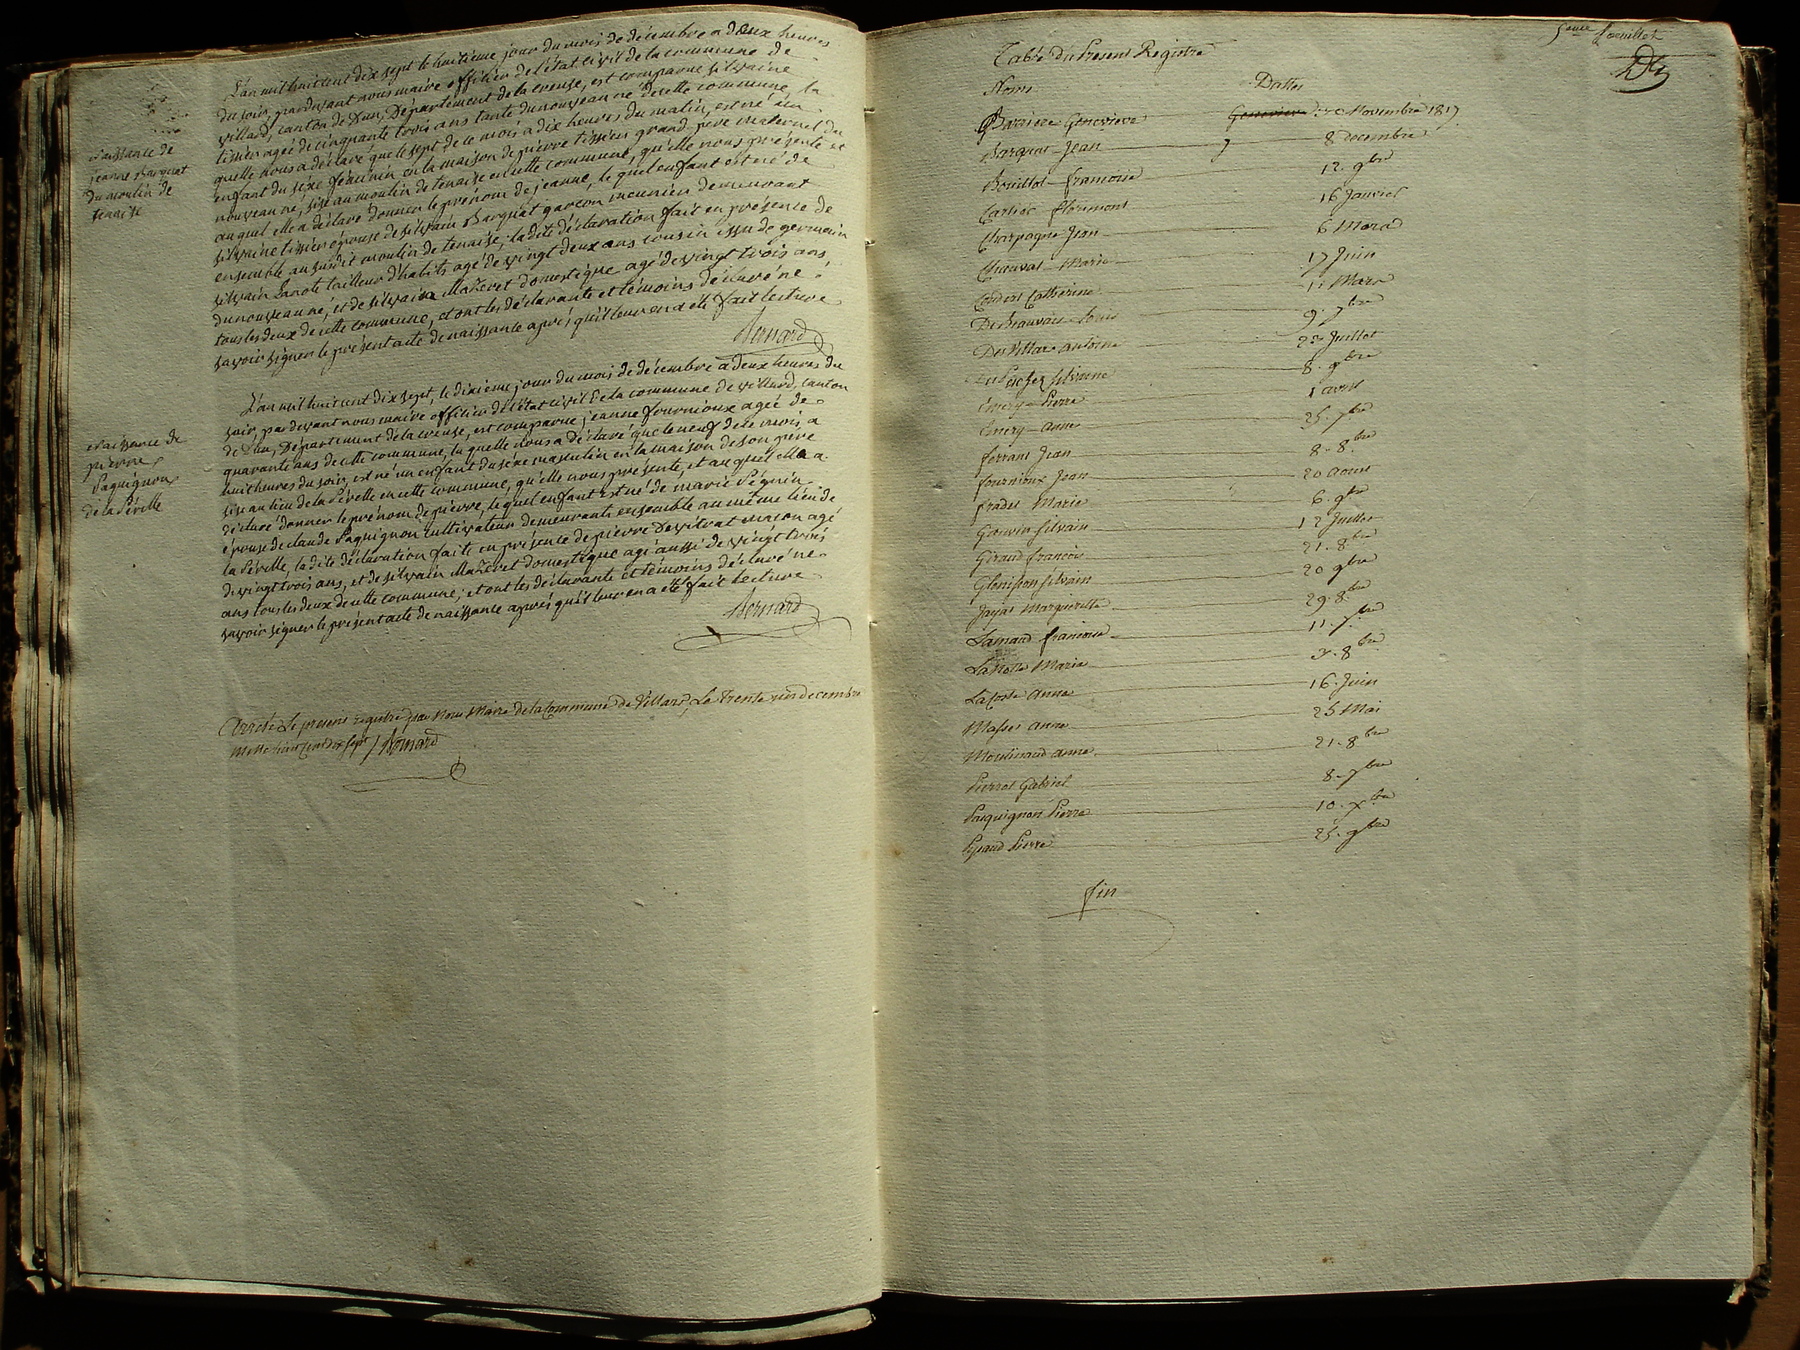 L'an mil huit cent dix sept le huitieme jour du mois de décembre a deux heures
du soir, pardevant nous maire officier de l'état civil de la commune de
villard, canton de Dun, Département de la creuse, est comparue silvaine
tissier agée de cinquante trois ans tante du nouveau né de cette commune, la
quelle nous a déclaré que le sept de ce mois a dix heures du matin, est né un
enfant du séxe féminin en la maison de pierre tissier grand pere maternel du
nouveau né, sise au moulin de tenaise en cette commune, qu'elle nous présente et
auquel elle a déclaré donner le prénom de jeanne, le quel enfant est né de
silvaine tissier épouse de silvain Barquat garcon meunier demeurant
ensemble au susdit moulin de tenaise; la dite déclaration fait en présence de
silvain Lanote tailleur d'habits agé de vingt deux ans cousin issu de germain
du nouveau né, et de silvain Mazeret domestique agé de vingt trois ans,
tous les deux de cette commune, et ont les déclarante et témoins déclaré ne
savoir signer le présent acte de naissance aprés qu'il leur en a été fait lecture
Bernard
naissance de
jeanne Barquat
du moulin de
tenaise
L'an mil huit cent dix sept, le dixieme jour du mois de décembre a deux heures du
soir, par devant nous maire officier de l'état civil de la commune de villard, canton
de Dun, Département de la creuse, est comparue, jeanne fournioux agée de
quarante ans de cette commune, la quelle nous a déclaré que le neuf de ce mois, a
huit heures du soir, est né un enfant du séxe masculin en la maison de son pere
sise au lieu de la Péville en cette commune, qu'elle nous présente, et au quel elle a
déclaré donner le prénom de pierre, le quel enfant est né de marie Péguin
épouse de claude Paquignon cultivateur demeurant ensemble au même lieu de
la Péville, la dite déclaration faite en présence de pierre Devitrat maçon agé
de vingt trois ans, et de silvain Mazeret domestique agé aussi de vingt trois
ans tous les deux de cette commune; et ont les déclarante et témoins déclaré ne
savoir signer le présent acte de naissance aprés qu'il leur en a été fait lecture
Bernard
naissance de
pierre
Paquignon
de la Péville
Arrété Le présent registre par Nous Maire de la Commune de Villard, Le Trente un decembre
mille huit cent dix sept / Bernard
5eme feuillet
Table du Présent Registre
Noms Dattes
Barriere Genevieve Genevieve Novembre 1817
Barquat Jean 8 decembre
Bouillot francoise 12. 9bre
Carhoc florimont 16 Janvier
Charpagne Jean 6 Mars
Chauvat Marie 17 Juin
Coudert Catherine 11 Mars
De Beauvais Louis 9. 7bre
Des Villars antoine Juillet
Silvaine 8. 9bre
Emery Pierre 1 avril
Emery anne 25. 7bre
ferrant Jean 8. 8bre
fournioux Jean 20 aoust
frades Marie 6. 9bre
Gauvin Silvain 12 Juillet
Giraud francois 21. 8bre
Glenisson Silvain 20 9bre
Jayat Marguerite 29. 8bre
Lamaud francoise 11. 7bre
Marie 8bre
Lacoste anne 16. Juin
Masses anne 25 Mai
Moulinaud anne 21. 8bre
Pierrot Gabriel 8. 7bre
Paquignon Pierre 10. Xbre
Pierre 25. 9bre
fin